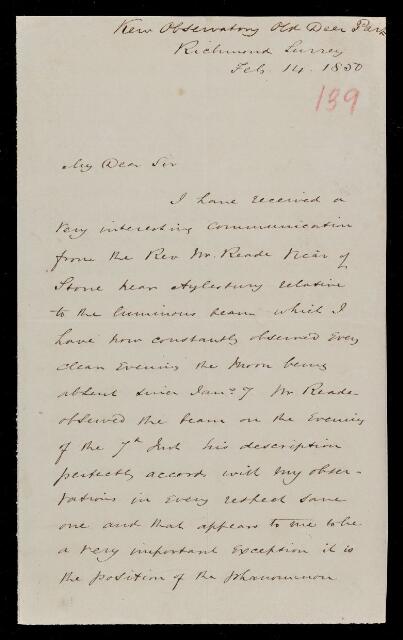 Kew Observatory Old Deer Park
Richmond Surrey
Feb. 14. 1850
139
My Dear Sir
I have received a
very interesting communication
from the Rev Mr. Reade Vicar of
Stone near Aylesbury relative
to the luminous beam which I
have now constantly observed every
clear Evening the Moon being
absent since Jany 7 Mr Reade
observed the beam on the Evening
of the 7th Inst his description
perfectly accords with my obser-
vations in Every respect save
one and that appears to me to be
a very important Exception it is
the position of the phanomenon